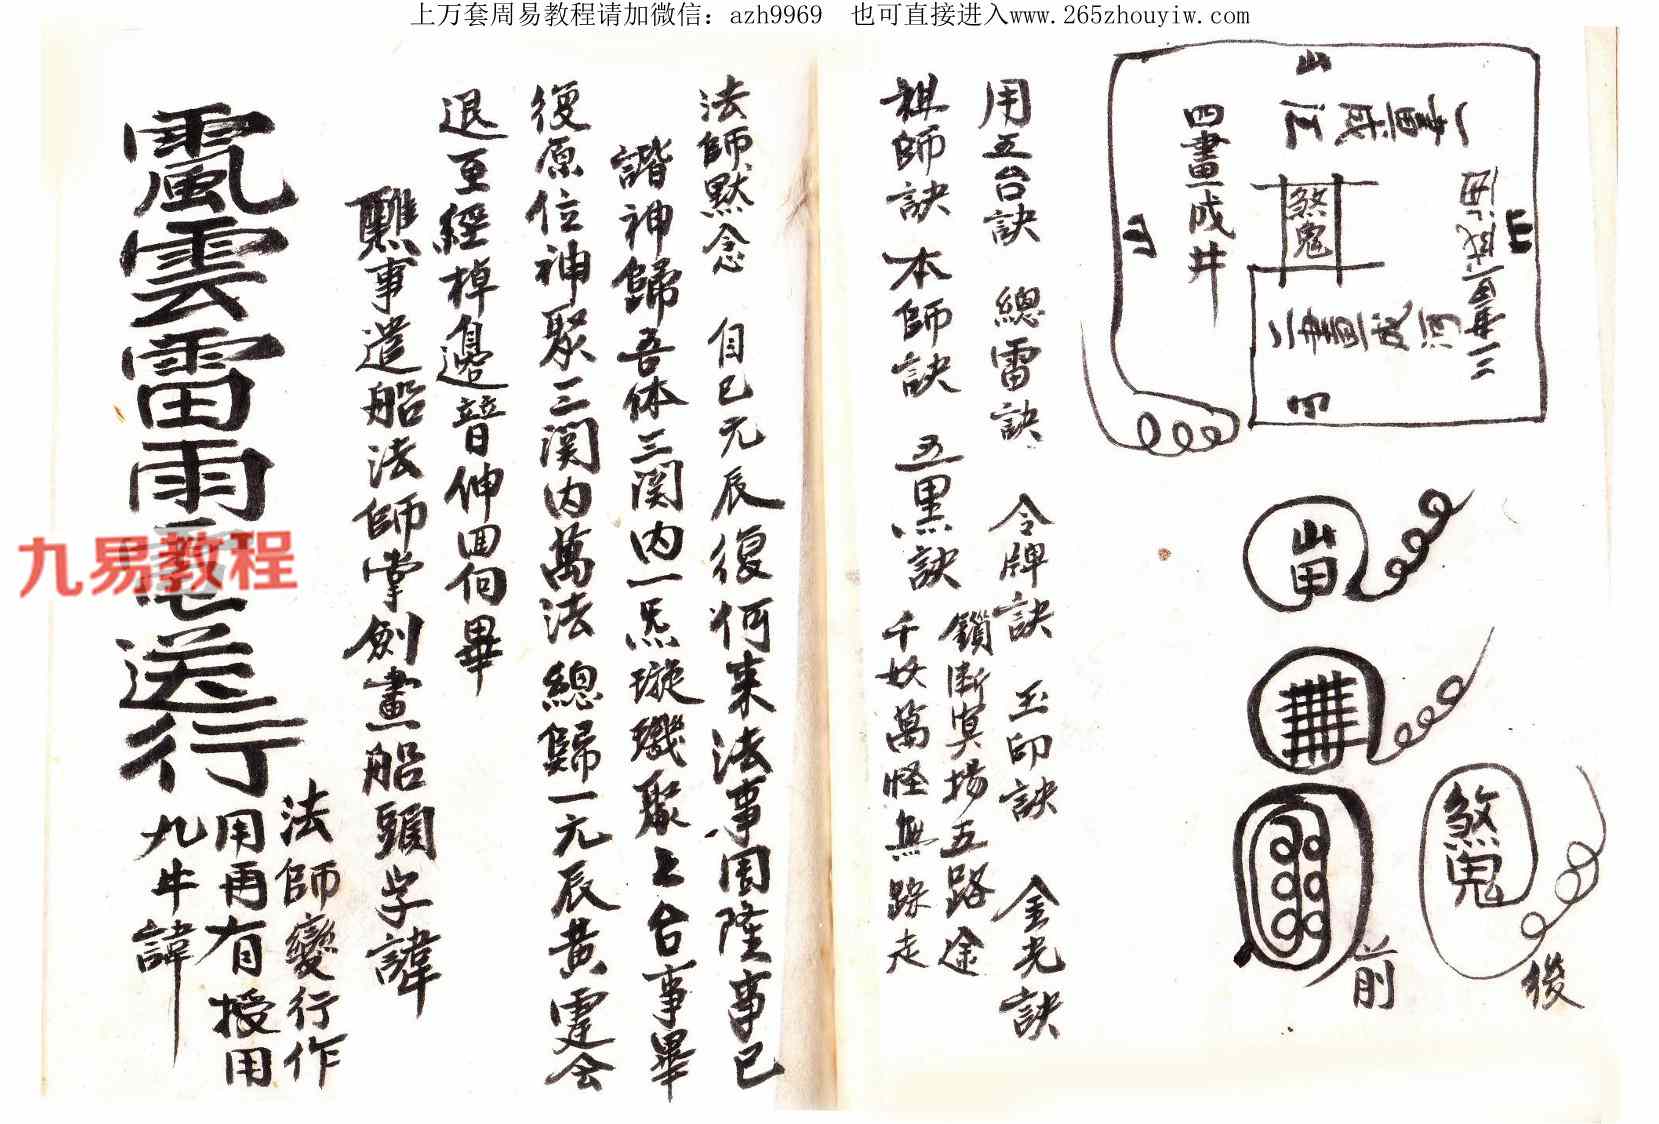 上万套周易教程请加微信：azh9969　也可直接进入www.265zhouyiw.com
一畫成江
二畫成河
三畫成海
四畫成井
山
山
山
四
煞鬼
煞鬼
前
後
用五台訣　總雷訣　令牌訣　玉印訣　金光訣
祺師訣　本師訣　五黑訣
鎖断冥場五路途
千妖萬怪無踪走
法師默念　自己元辰復何来法事周隆事已
諧神歸吾体三関内一炁璇璣聚上台事畢
復原位神聚三関内萬法總歸一元辰黄
退至經棹邊
伸回向畢
事遣船法師掌劍畫船頭字諱
風雲雷雨
送行
法師變行作
用再有授用
九牛諱
九易教程